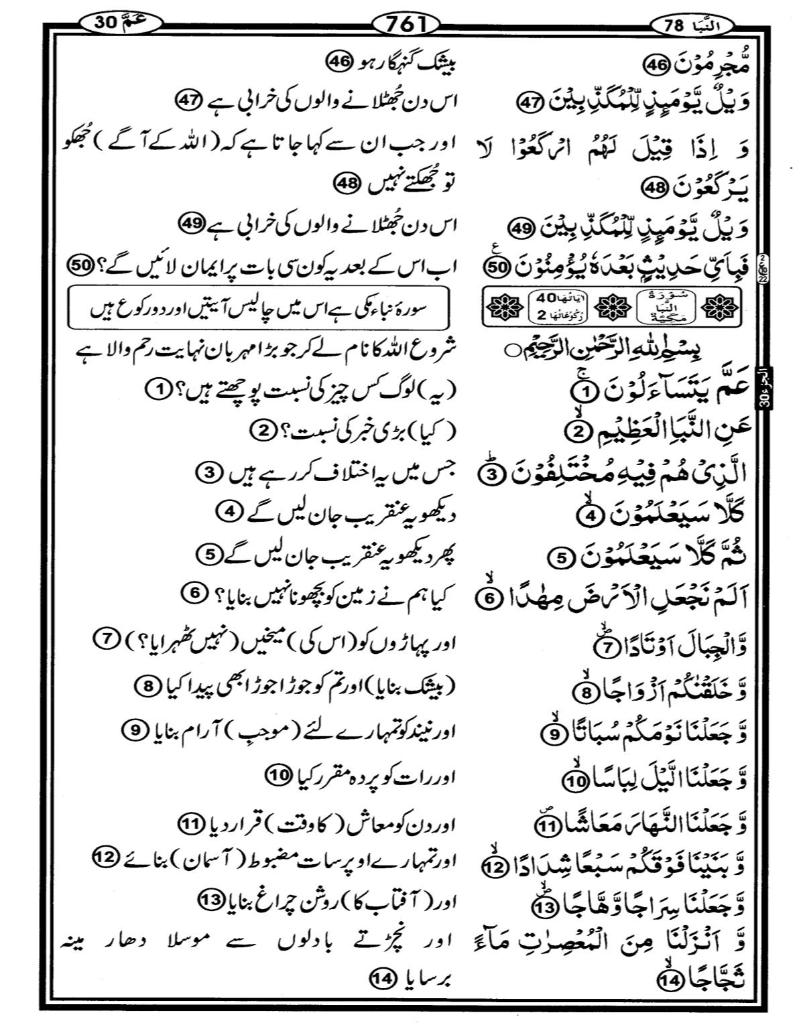 النَّبَا 78
761
عَمَّ 30
مُّجْرِمُوْنَ 46
بیشک گنہگار ہو 46
وَيْلٌ يَّوْمَىِٕذٍ لِّلْمُكَذِّبِيْنَ 47
اس دن جُھٹلانے والوں کی خرابی ہے 47
وَ اِذَا قِيْلَ لَهُمُ ارْكَعُوْا لَا
اور جب ان سے کہا جاتا ہے کہ (اللہ کے آگے) جُھکو
يَرْكَعُوْنَ 48
تو جُھکتے نہیں 48
وَيْلٌ يَّوْمَىِٕذٍ لِّلْمُكَذِّبِيْنَ 49
اس دن جُھٹلانے والوں کی خرابی ہے 49
فَبِاَيِّ حَدِيْثٍۭ بَعْدَهٗ يُؤْمِنُوْنَ ع 50
اب اس کے بعد یہ کون سی بات پر ایمان لائیں گے؟ 50
سُوْرَةُ
النَّبَا
مَكِّيَّةٌ
اٰيَاتُهَا 40
رُكُوْعَاتُهَا 2
سورۂ نباء مکی ہے اس میں چالیس آیتیں اور دو رکوع ہیں
بِسْمِ اللهِ الرَّحْمٰنِ الرَّحِيْمِ
شروع اللہ کا نام لے کر جو بڑا مہربان نہایت رحم والا ہے
الجزء 30
عَمَّ يَتَسَآءَلُوْنَ ۚ 1
(یہ) لوگ کس چیز کی نسبت پوچھتے ہیں؟ 1
عَنِ النَّبَاِ الْعَظِيْمِ ۙ 2
(کیا) بڑی خبر کی نسبت؟ 2
الَّذِيْ هُمْ فِيْهِ مُخْتَلِفُوْنَ ؕ 3
جس میں یہ اختلاف کر رہے ہیں 3
كَلَّا سَيَعْلَمُوْنَ ۙ 4
دیکھو یہ عنقریب جان لیں گے 4
ثُمَّ كَلَّا سَيَعْلَمُوْنَ 5
پھر دیکھو یہ عنقریب جان لیں گے 5
اَلَمْ نَجْعَلِ الْاَرْضَ مِهٰدًا ۙ 6
کیا ہم نے زمین کو بچھونا نہیں بنایا؟ 6
وَّالْجِبَالَ اَوْتَادًا ۪ۙ 7
اور پہاڑوں کو (اس کی) میخیں (نہیں ٹھہرایا؟) 7
وَّ خَلَقْنٰكُمْ اَزْوَاجًا ۙ 8
(بیشک بنایا) اور تم کو جوڑا جوڑا بھی پیدا کیا 8
وَّ جَعَلْنَا نَوْمَكُمْ سُبَاتًا ۙ 9
اور نیند کو تمہارے لئے (موجبِ) آرام بنایا 9
وَّ جَعَلْنَا الَّيْلَ لِبَاسًا ۙ 10
اور رات کو پردہ مقرر کیا 10
وَّ جَعَلْنَا النَّهَارَ مَعَاشًا ۪ 11
اور دن کو معاش (کا وقت) قرار دیا 11
وَّ بَنَيْنَا فَوْقَكُمْ سَبْعًا شِدَادًا ۙ 12
اور تمہارے اوپر سات مضبوط (آسمان) بنائے 12
وَّ جَعَلْنَا سِرَاجًا وَّهَّاجًا ۪ۙ 13
اور (آفتاب کا) روشن چراغ بنایا 13
وَّ اَنْزَلْنَا مِنَ الْمُعْصِرٰتِ مَآءً
اور نچڑتے بادلوں سے موسلا دھار مینہ
ثَجَّاجًا ۙ 14
برسایا 14